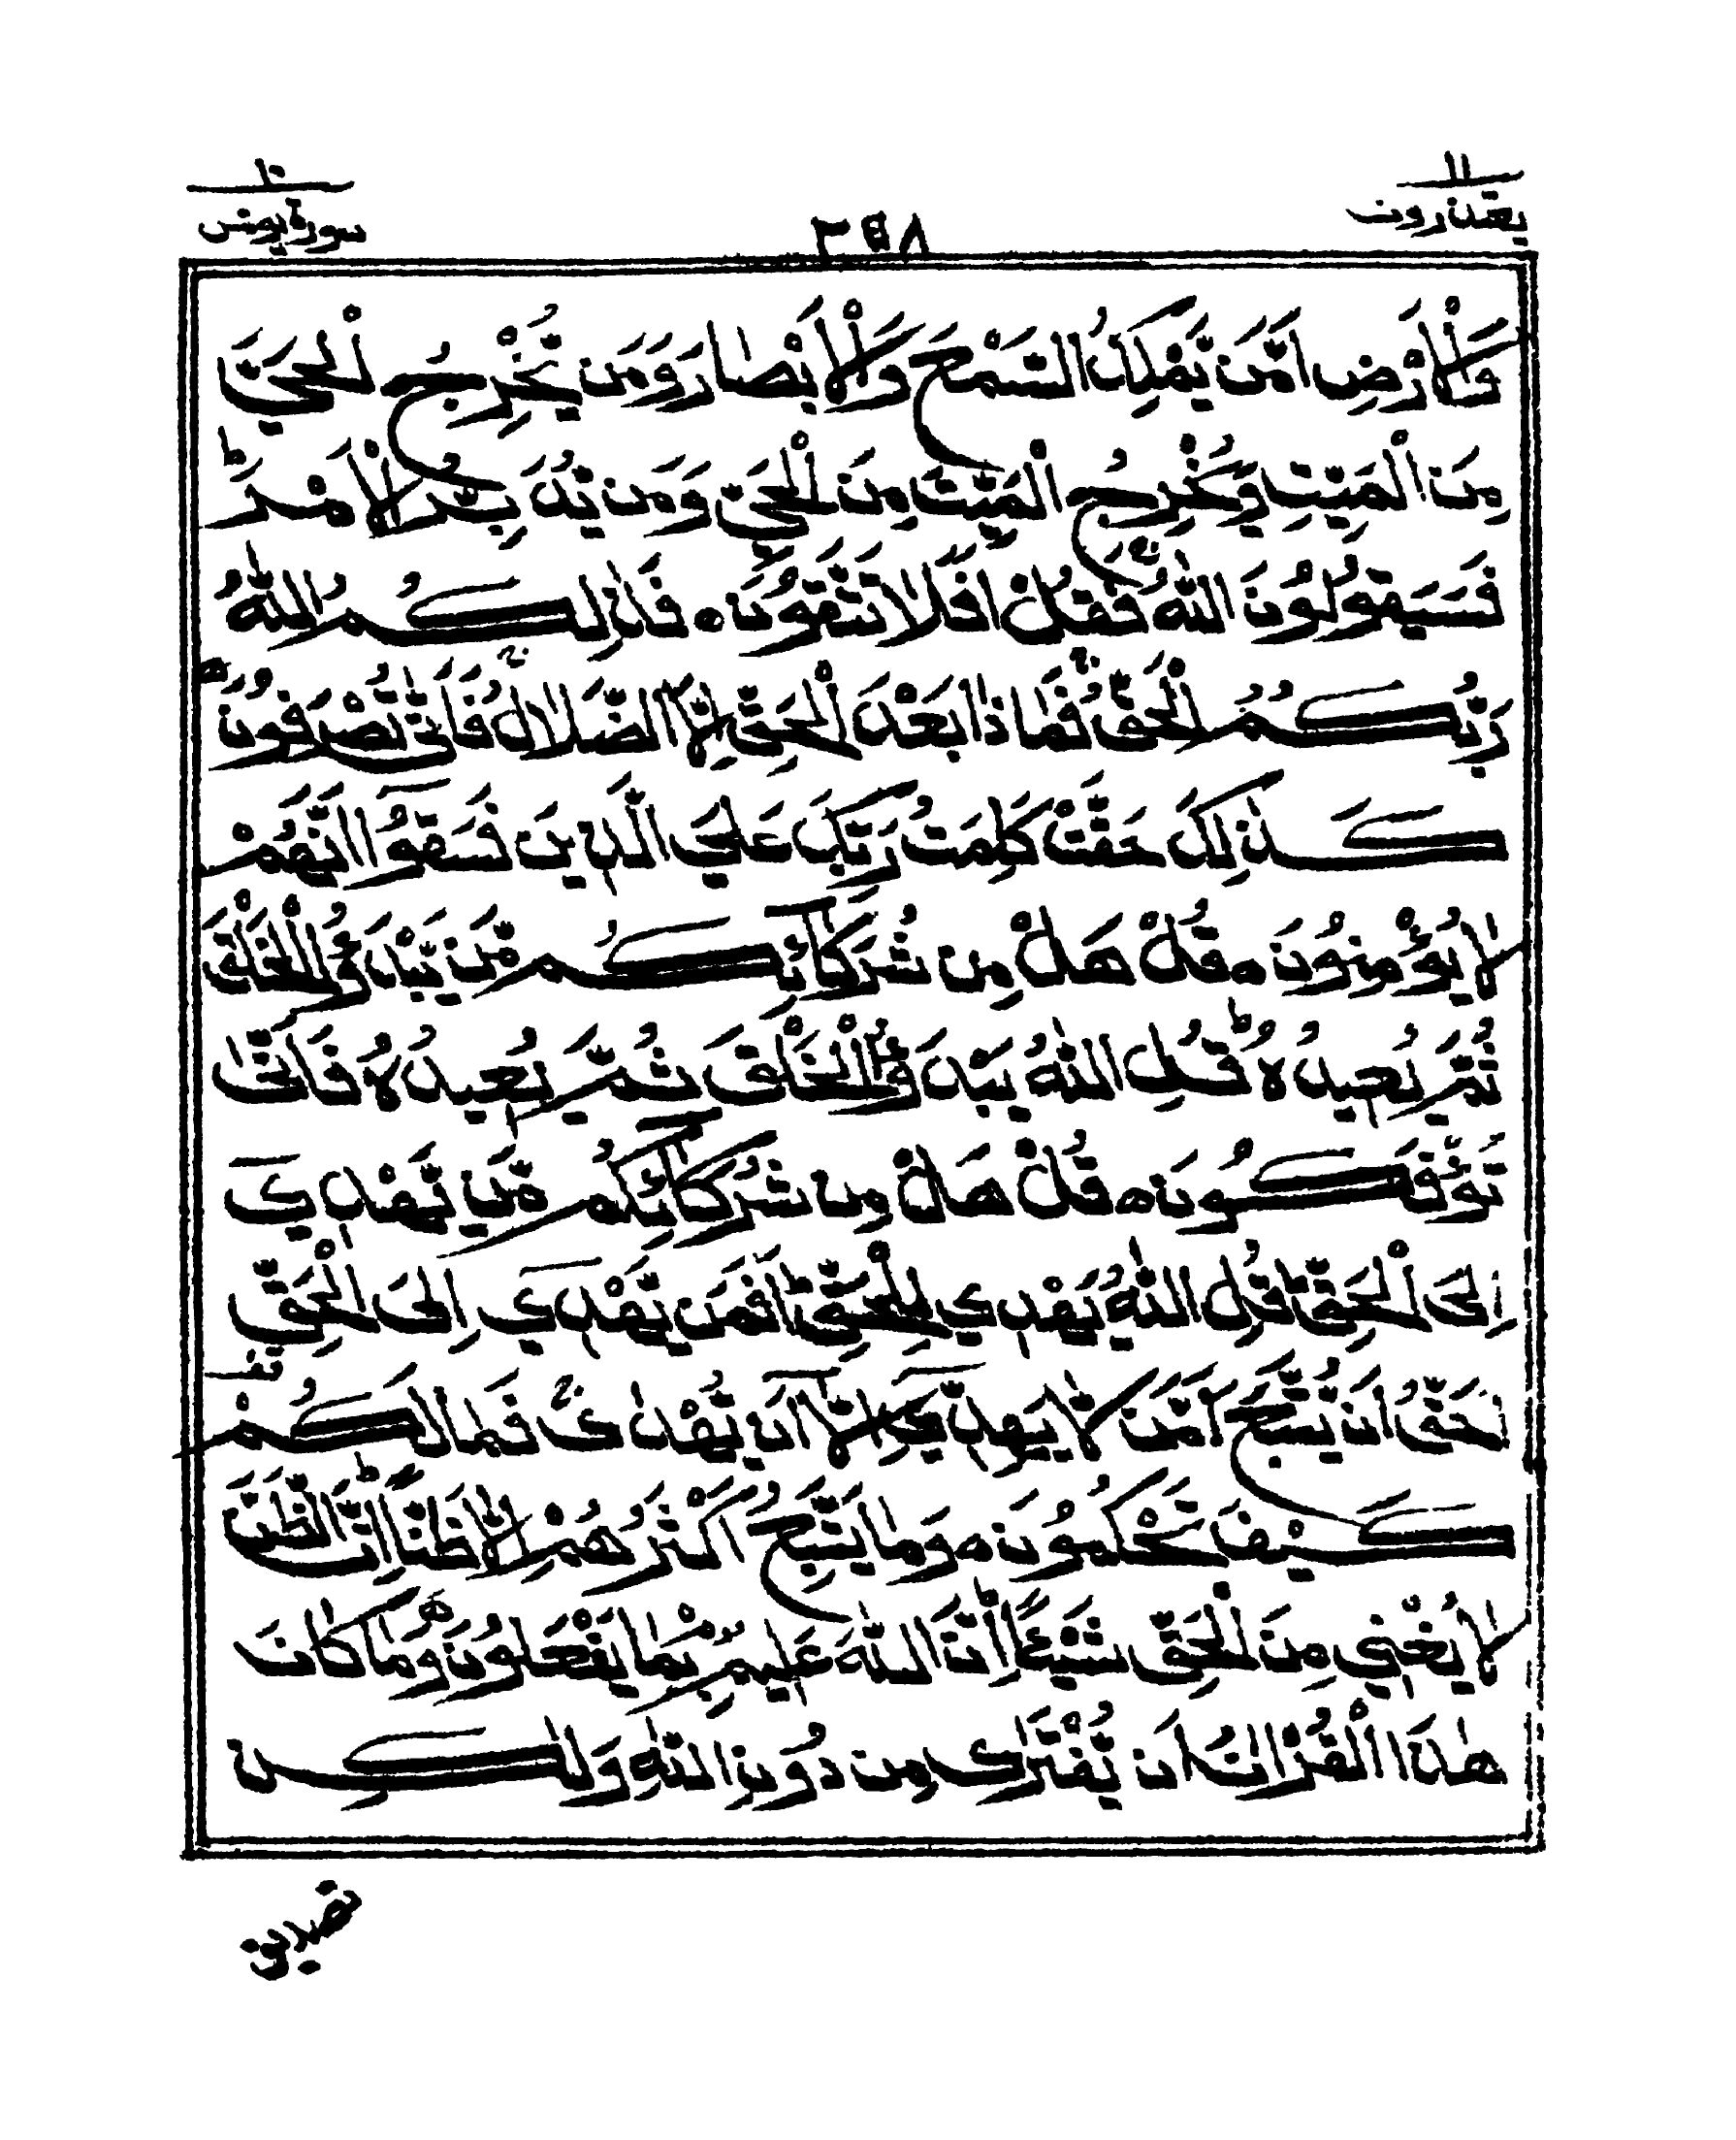 ١١
يعتذرون
٣٥٨
١٠
سورة يونس
وَالْاَرْضِ اَمَّنْ يَّمْلِكُ السَّمْعَ وَالْاَبْصَارَ وَمَنْ يُّخْرِجُ الْحَيَّ
مِنَ الْمَيِّتِ وَيُخْرِجُ الْمَيِّتَ مِنَ الْحَيِّ وَمَنْ يُّدَبِّرُ الْاَمْرَؕ
فَسَيَقُوْلُوْنَ اللّٰهُ ۚ فَقُلْ اَفَلَا تَتَّقُوْنَ ۝ فَذٰلِكُمُ اللّٰهُ
رَبُّكُمُ الْحَقُّ ۚ فَمَاذَا بَعْدَ الْحَقِّ اِلَّا الضَّلٰلُ ۚ فَاَنّٰى تُصْرَفُوْنَ
كَذٰلِكَ حَقَّتْ كَلِمَتُ رَبِّكَ عَلَى الَّذِيْنَ فَسَقُوْۤا اَنَّهُمْ
لَا يُؤْمِنُوْنَ ۝ قُلْ هَلْ مِنْ شُرَكَآئِكُمْ مَّنْ يَّبْدَؤُا الْخَلْقَ
ثُمَّ يُعِيْدُهٗؕ قُلِ اللّٰهُ يَبْدَؤُا الْخَلْقَ ثُمَّ يُعِيْدُهٗ فَاَنّٰى
تُؤْفَكُوْنَ ۝ قُلْ هَلْ مِنْ شُرَكَآئِكُمْ مَّنْ يَّهْدِيْۤ
اِلَى الْحَقِّؕ قُلِ اللّٰهُ يَهْدِيْ لِلْحَقِّؕ اَفَمَنْ يَّهْدِيْۤ اِلَى الْحَقِّ
اَحَقُّ اَنْ يُّتَّبَعَ اَمَّنْ لَّا يَهِدِّيْۤ اِلَّاۤ اَنْ يُّهْدٰى ۚ فَمَا لَكُمْ
كَيْفَ تَحْكُمُوْنَ ۝ وَمَا يَتَّبِعُ اَكْثَرُهُمْ اِلَّا ظَنًّاؕ اِنَّ الظَّنَّ
لَا يُغْنِيْ مِنَ الْحَقِّ شَيْئًاؕ اِنَّ اللّٰهَ عَلِيْمٌۢ بِمَا يَفْعَلُوْنَ ۝ وَمَا كَانَ
هٰذَا الْقُرْاٰنُ اَنْ يُّفْتَرٰى مِنْ دُوْنِ اللّٰهِ وَلٰكِنْ
تصديق